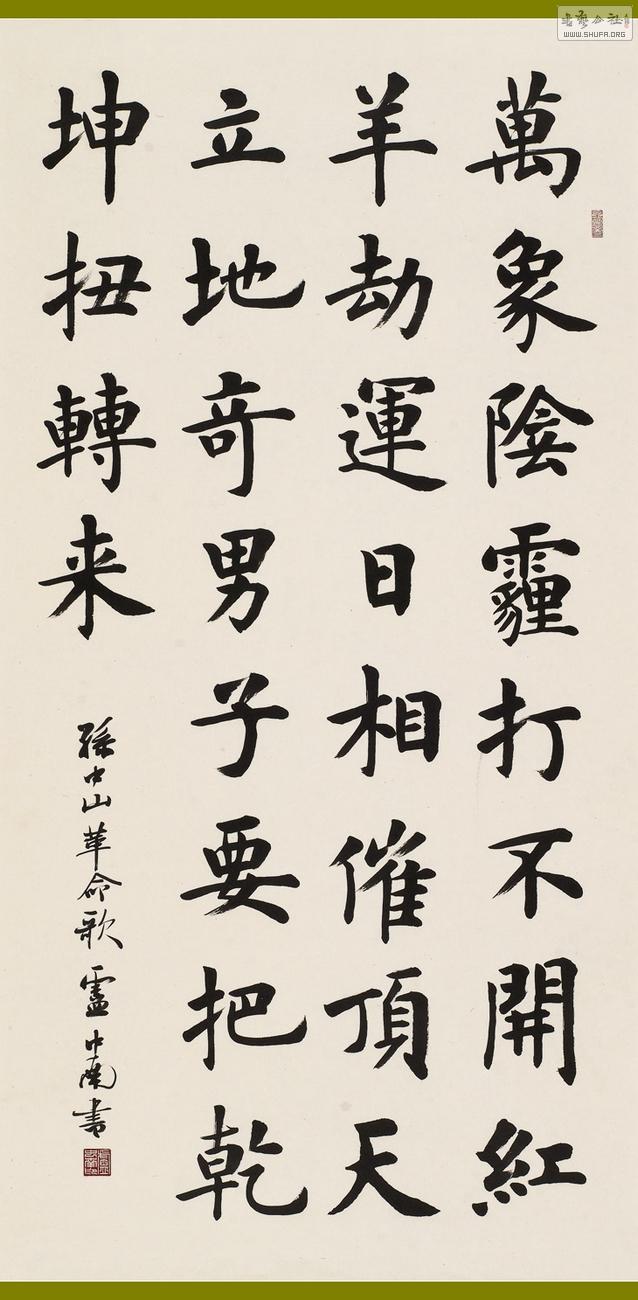 萬象陰霾打不開紅
羊劫運日相催頂天
立地奇男子要把乾
坤扭轉来
孫中山革命歌 盧中南書
WWW.SHUFA.ORG